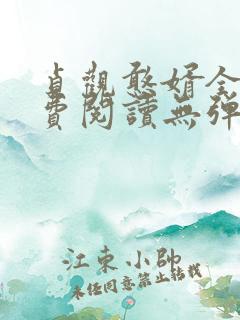 貞觀憨婿全
費閱讀無彈
江東小帥
未經同意禁止轉載